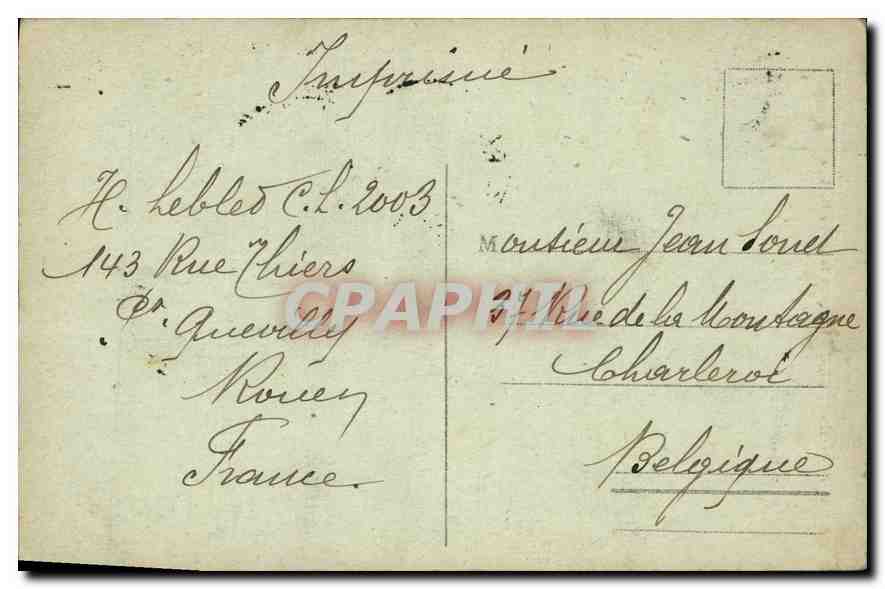 Imprimé
H. Lebled C.L. 2003
143 Rue Thiers
Pt. Quevilly
Rouen
France.
Monsieur Jean
37 Rue de la Montagne
Charleroi
Belgique
CPAPHIL